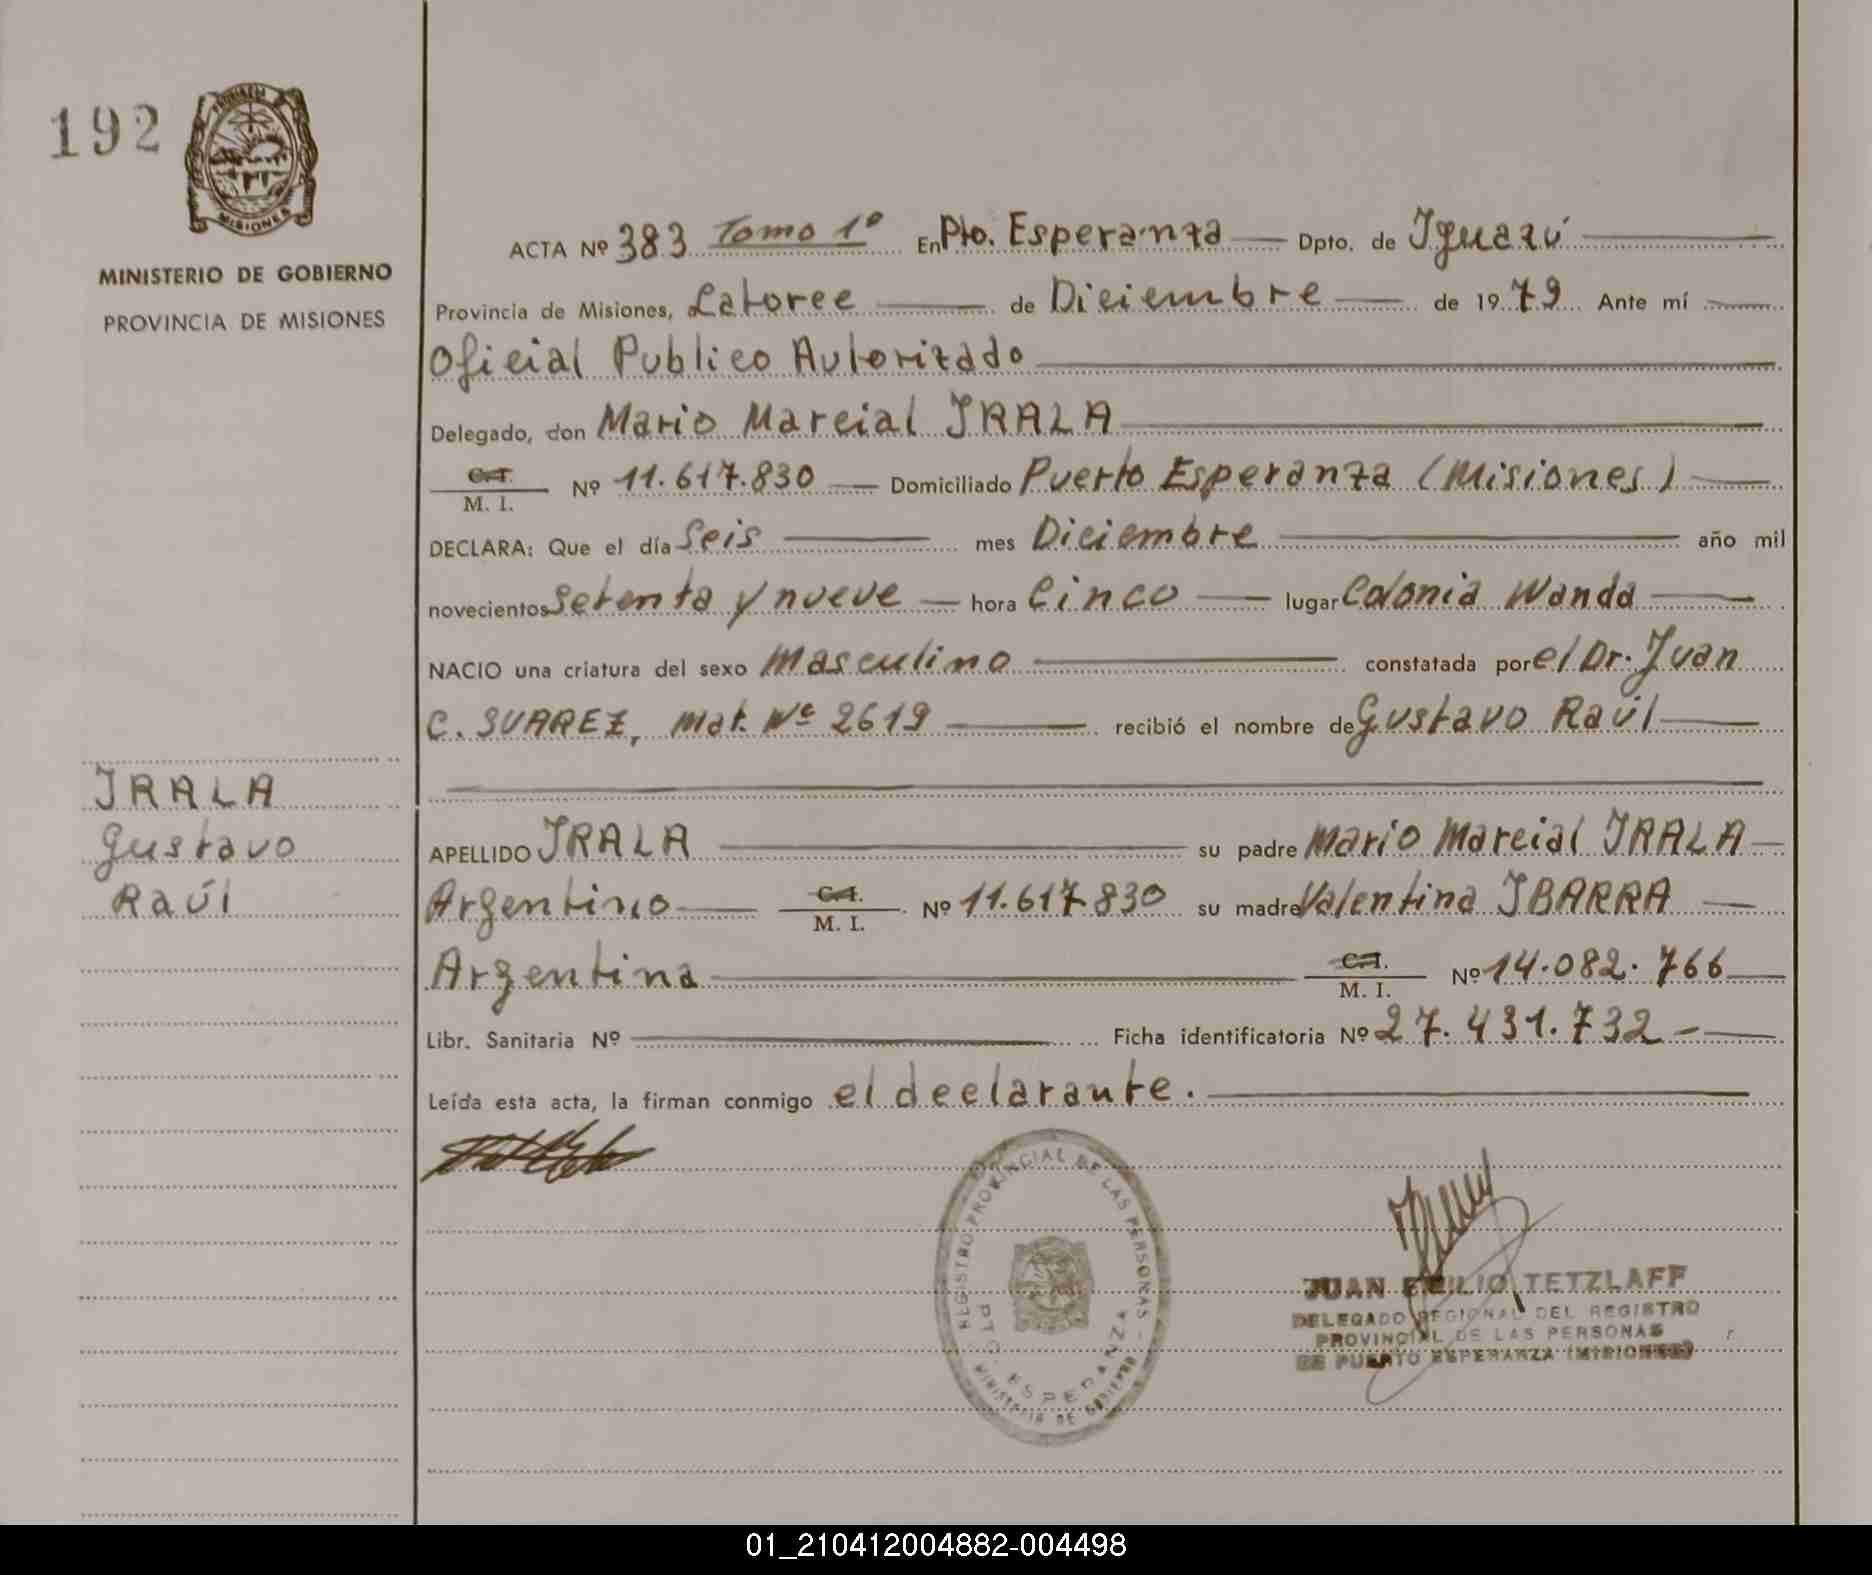 192
PROVINCIA
MISIONES
MINISTERIO DE GOBIERNO
PROVINCIA DE MISIONES
IRALA
Gustavo
Raúl
ACTA Nº 383 Tomo 1º En Pto. Esperanza Dpto. de Iguazú
Provincia de Misiones, Catorce de Diciembre de 1979 Ante mí
Oficial Publico Autorizado
Delegado, don Mario Marcial IRALA
C.I. M. I. Nº 11.617.830 Domiciliado Puerto Esperanza (Misiones)
DECLARA: Que el día Seis mes Diciembre año mil
novecientos Setenta y nueve hora Cinco lugar Colonia Wanda
NACIO una criatura del sexo Masculino constatada por el Dr. Juan
C. SUAREZ, Mat. Nº 2619 recibió el nombre de Gustavo Raúl
APELLIDO IRALA su padre Mario Marcial IRALA
Argentino C.I. M. I. Nº 11.617.830 su madre Valentina IBARRA
Argentina C.I. M. I. Nº 14.082.766
Libr. Sanitaria Nº Ficha identificatoria Nº 27.431.732
Leída esta acta, la firman conmigo el declarante.
REGISTRO PROVINCIAL DE LAS PERSONAS
PTO. ESPERANZA
MINISTERIO DE GOBIERNO
JUAN EMILIO TETZLAFF
DELEGADO REGIONAL DEL REGISTRO
PROVINCIAL DE LAS PERSONAS
DE PUERTO ESPERANZA (MISIONES)
01_210412004882-004498